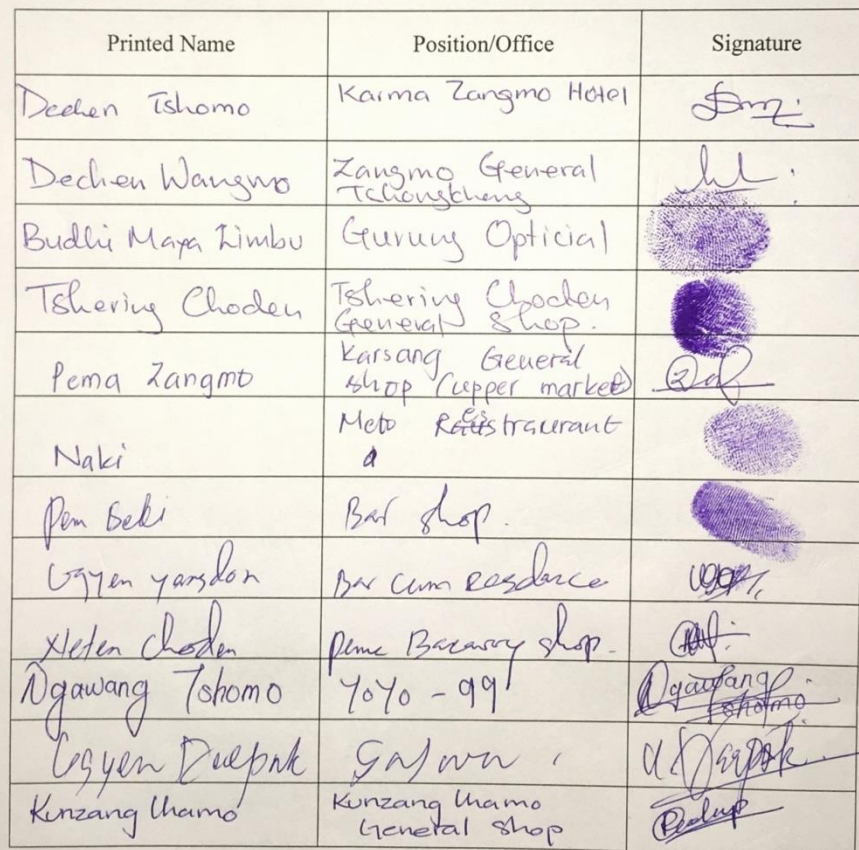 Printed Name Position/Office Signature
Dechen Tshomo Karma Zangmo Hotel
Dechen Wangmo Zangmo General
Tchongkhang
Budhi Maya Limbu Gurung Opticial
Tshering Choden Tshering Choden
General Shop.
Pema Zangmo Karsang General
shop (upper market)
Meto Restraurant
Naki
Pem Beki Bar shop.
Ugyen yangdon Bar cum
Choden shop.
Ngawang Tshomo YoYo - 99 Ngawang
Tshomo
Ugyen Deepak U. Deepak
Kunzang lhamo Kunzang lhamo
General shop